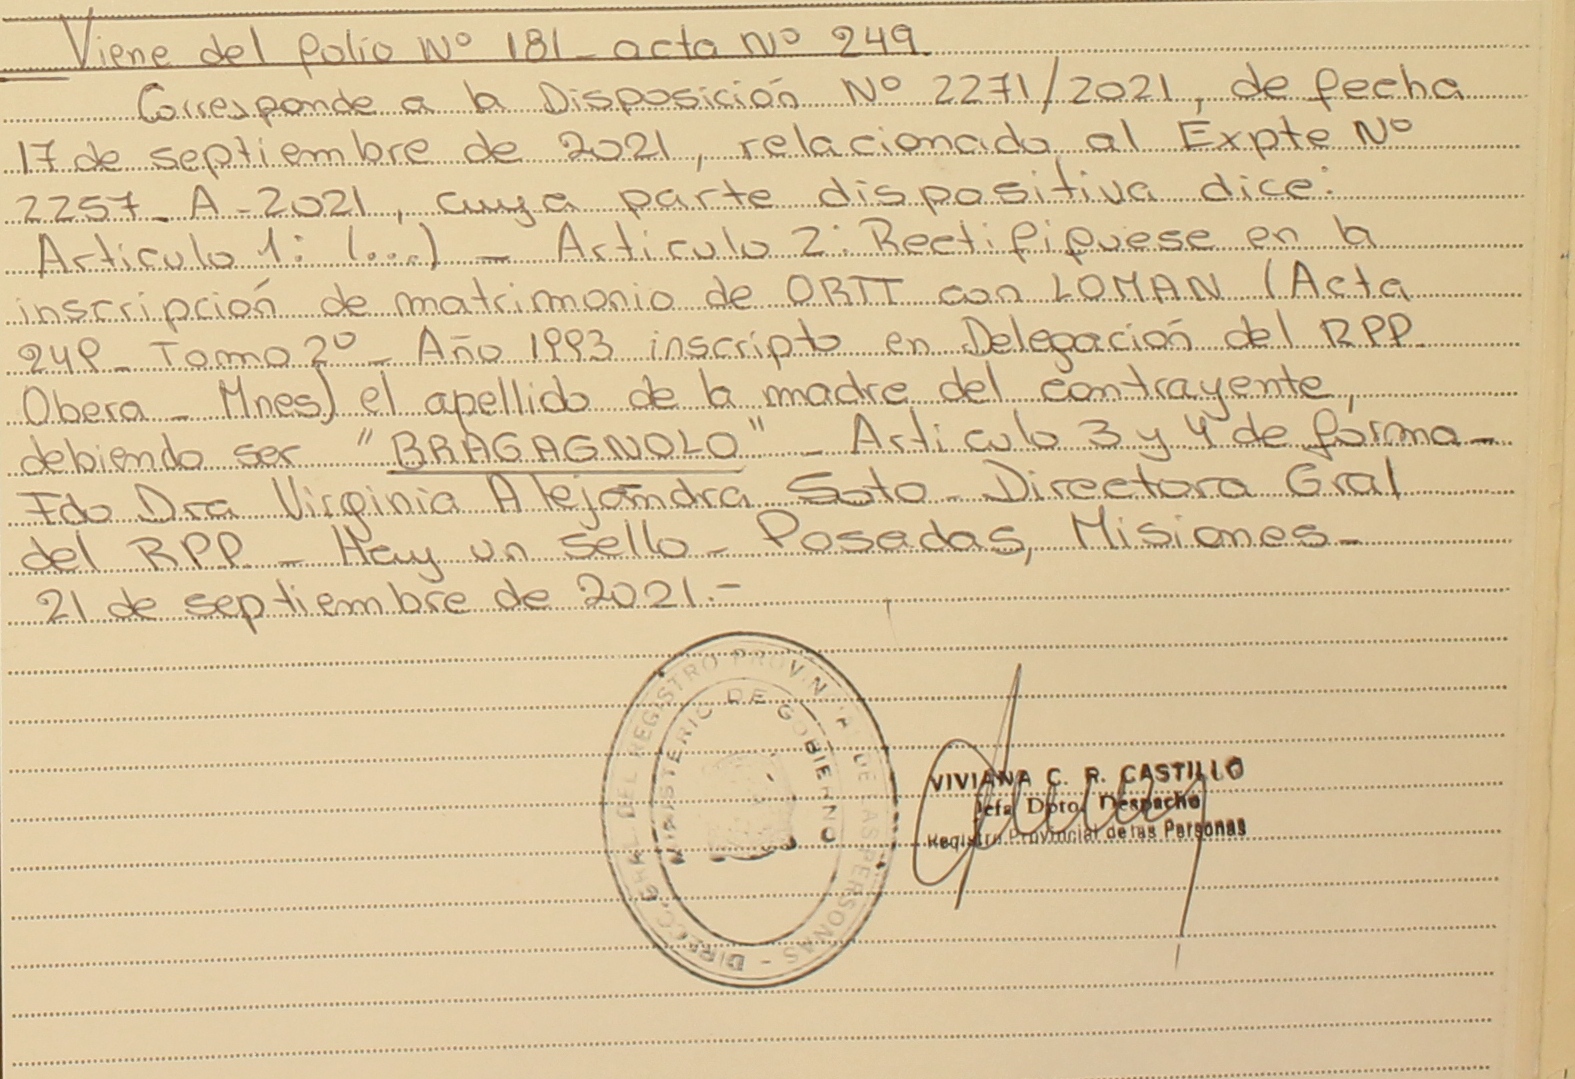 Viene del folio Nº 181 - acta Nº 249.
Corresponde a la Disposición Nº 2271/2021, de fecha
17 de septiembre de 2021, relacionado al Expte Nº
2257 - A - 2021, cuya parte dispositiva dice:
Artículo 1: (...) - Artículo 2: Rectifíquese en la
inscripción de matrimonio de ORTT con LOMAN (Acta
249 - Tomo 2º - Año 1993 inscripto en Delegación del RPP.
Obera - Mnes) el apellido de la madre del contrayente,
debiendo ser "BRAGAGNOLO" - Artículo 3 y 4 de forma -
Fdo Dra Virginia Alejandra Soto - Directora Gral
del RPP. - Hay un sello - Posadas, Misiones -
21 de septiembre de 2021.-
DIRECC. GRAL. DEL REGISTRO PROVINCIAL DE LAS PERSONAS -
MINISTERIO DE GOBIERNO
VIVIANA C. R. CASTILLO
Jefa Dpto. Despacho
Registro Provincial de las Personas